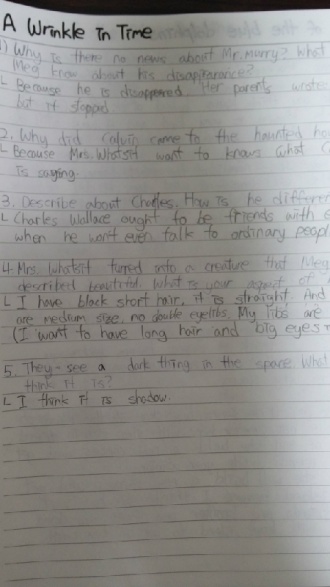 A Wrinkle In Time
1) Why is there no news about Mr. Murry? What
Meg know about his disapparance?
L Because he is disappeared. Her parents wrote
but it stopped.
2. Why did Calvin came to the haunted ho
L Because Mrs. Whatsit want to know what C
is saying.
3. Describe about Charles. How is he differen
L Charles Wallace ought to be friends with
when he won't even talk to ordinary peopl
4. Mrs. Whatsit turned into a creature that Meg
described beautiful. What is your aspect of
L I have black short hair, it is straight. And
are medium size, no double eyelibs. My libs are
(I want to have long hair and big eyes
5. They see a dark thing in the space. What
think it is?
L I think it is shadow.